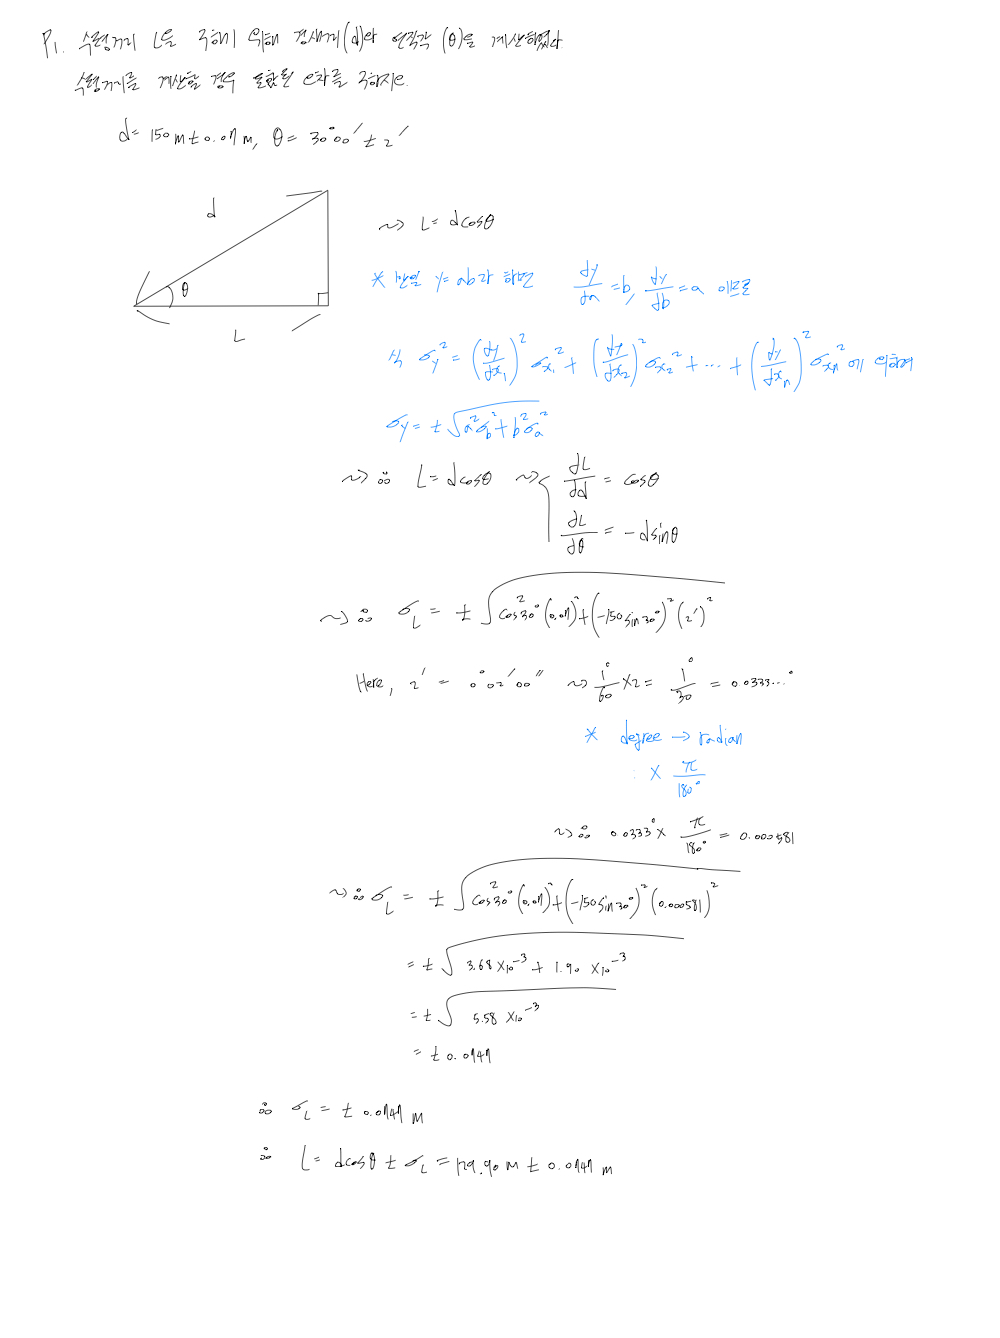 P1. 수평거리 L을 구하기 위해 경사거리(d)와 연직각 (θ)을 계산하였다.
수평거리를 계산할 경우 포함된 오차를 구하시오.
d= 150m±0.07m, θ= 30°00′±2′
d
θ
L
~> L= dcosθ
* 만일 y=ab라 하면 ∂y/∂a=b, ∂y/∂b=a 이므로
식 σy²=(∂y/∂x₁)²σx₁²+(∂y/∂x₂)²σx₂²+⋯+(∂y/∂xn)²σxn²에 의하여
σy=±√(a²σb²+b²σa²)
~> ∴ L=dcosθ ~> ∂L/∂d = cosθ
∂L/∂θ = -dsinθ
~> ∴ σL = ±√(cos²30°(0.07)²+(-150sin30°)²(2′)²)
Here, 2′ = 0°02′00″ ~> 1°/60 ×2= 1°/30 = 0.0333...°
* degree → radian
: × π/180°
~> ∴ 0.0333°× π/180° = 0.000581
~> ∴ σL = ±√(cos²30°(0.07)²+(-150sin30°)²(0.000581)²)
=±√(3.68×10⁻³+1.90×10⁻³)
=±√(5.58×10⁻³)
= ±0.0747
∴ σL= ±0.0747 m
∴ L= dcosθ±σL=129.90m±0.0747 m